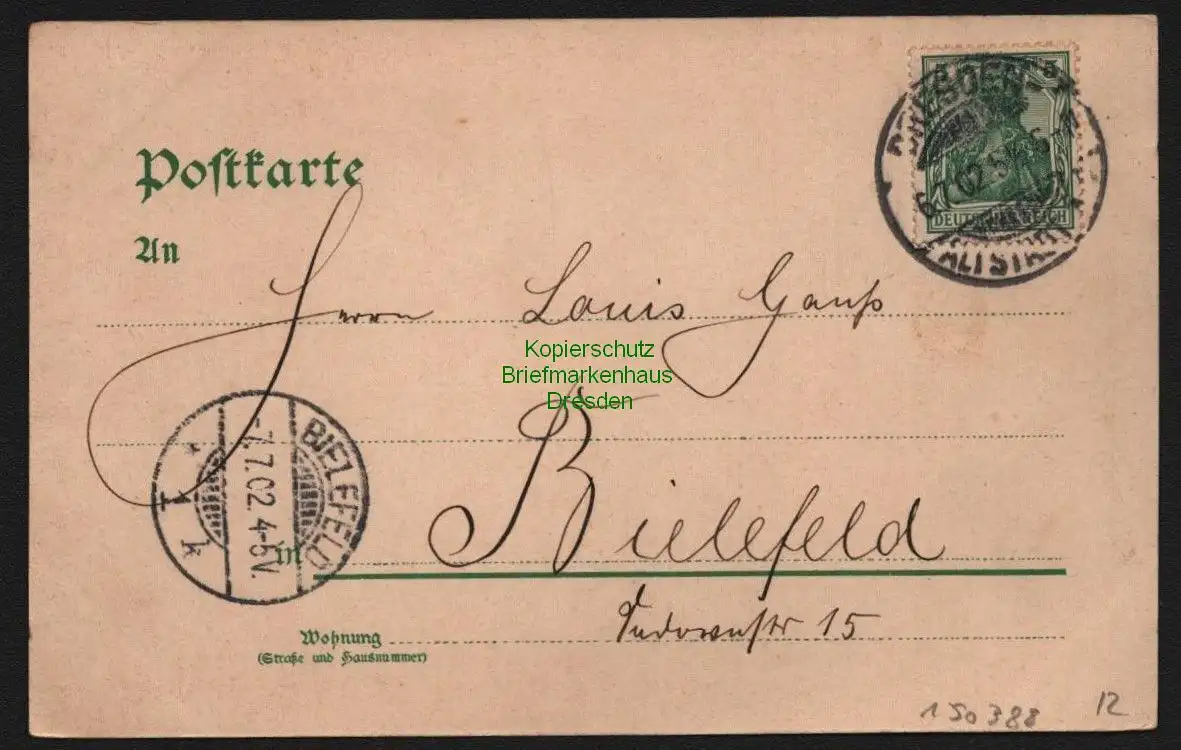 Postkarte
DRESDEN
5
6.7.02.5
DEUTSCHES REICH
ALTSTADT
An
Herrn Louis Gauß
Kopierschutz
Briefmarkenhaus
Dresden
BIELEFELD
-7.7.02.4-5V.
in Bielefeld
15
Wohnung
(Straße und Hausnummer)
150388 12